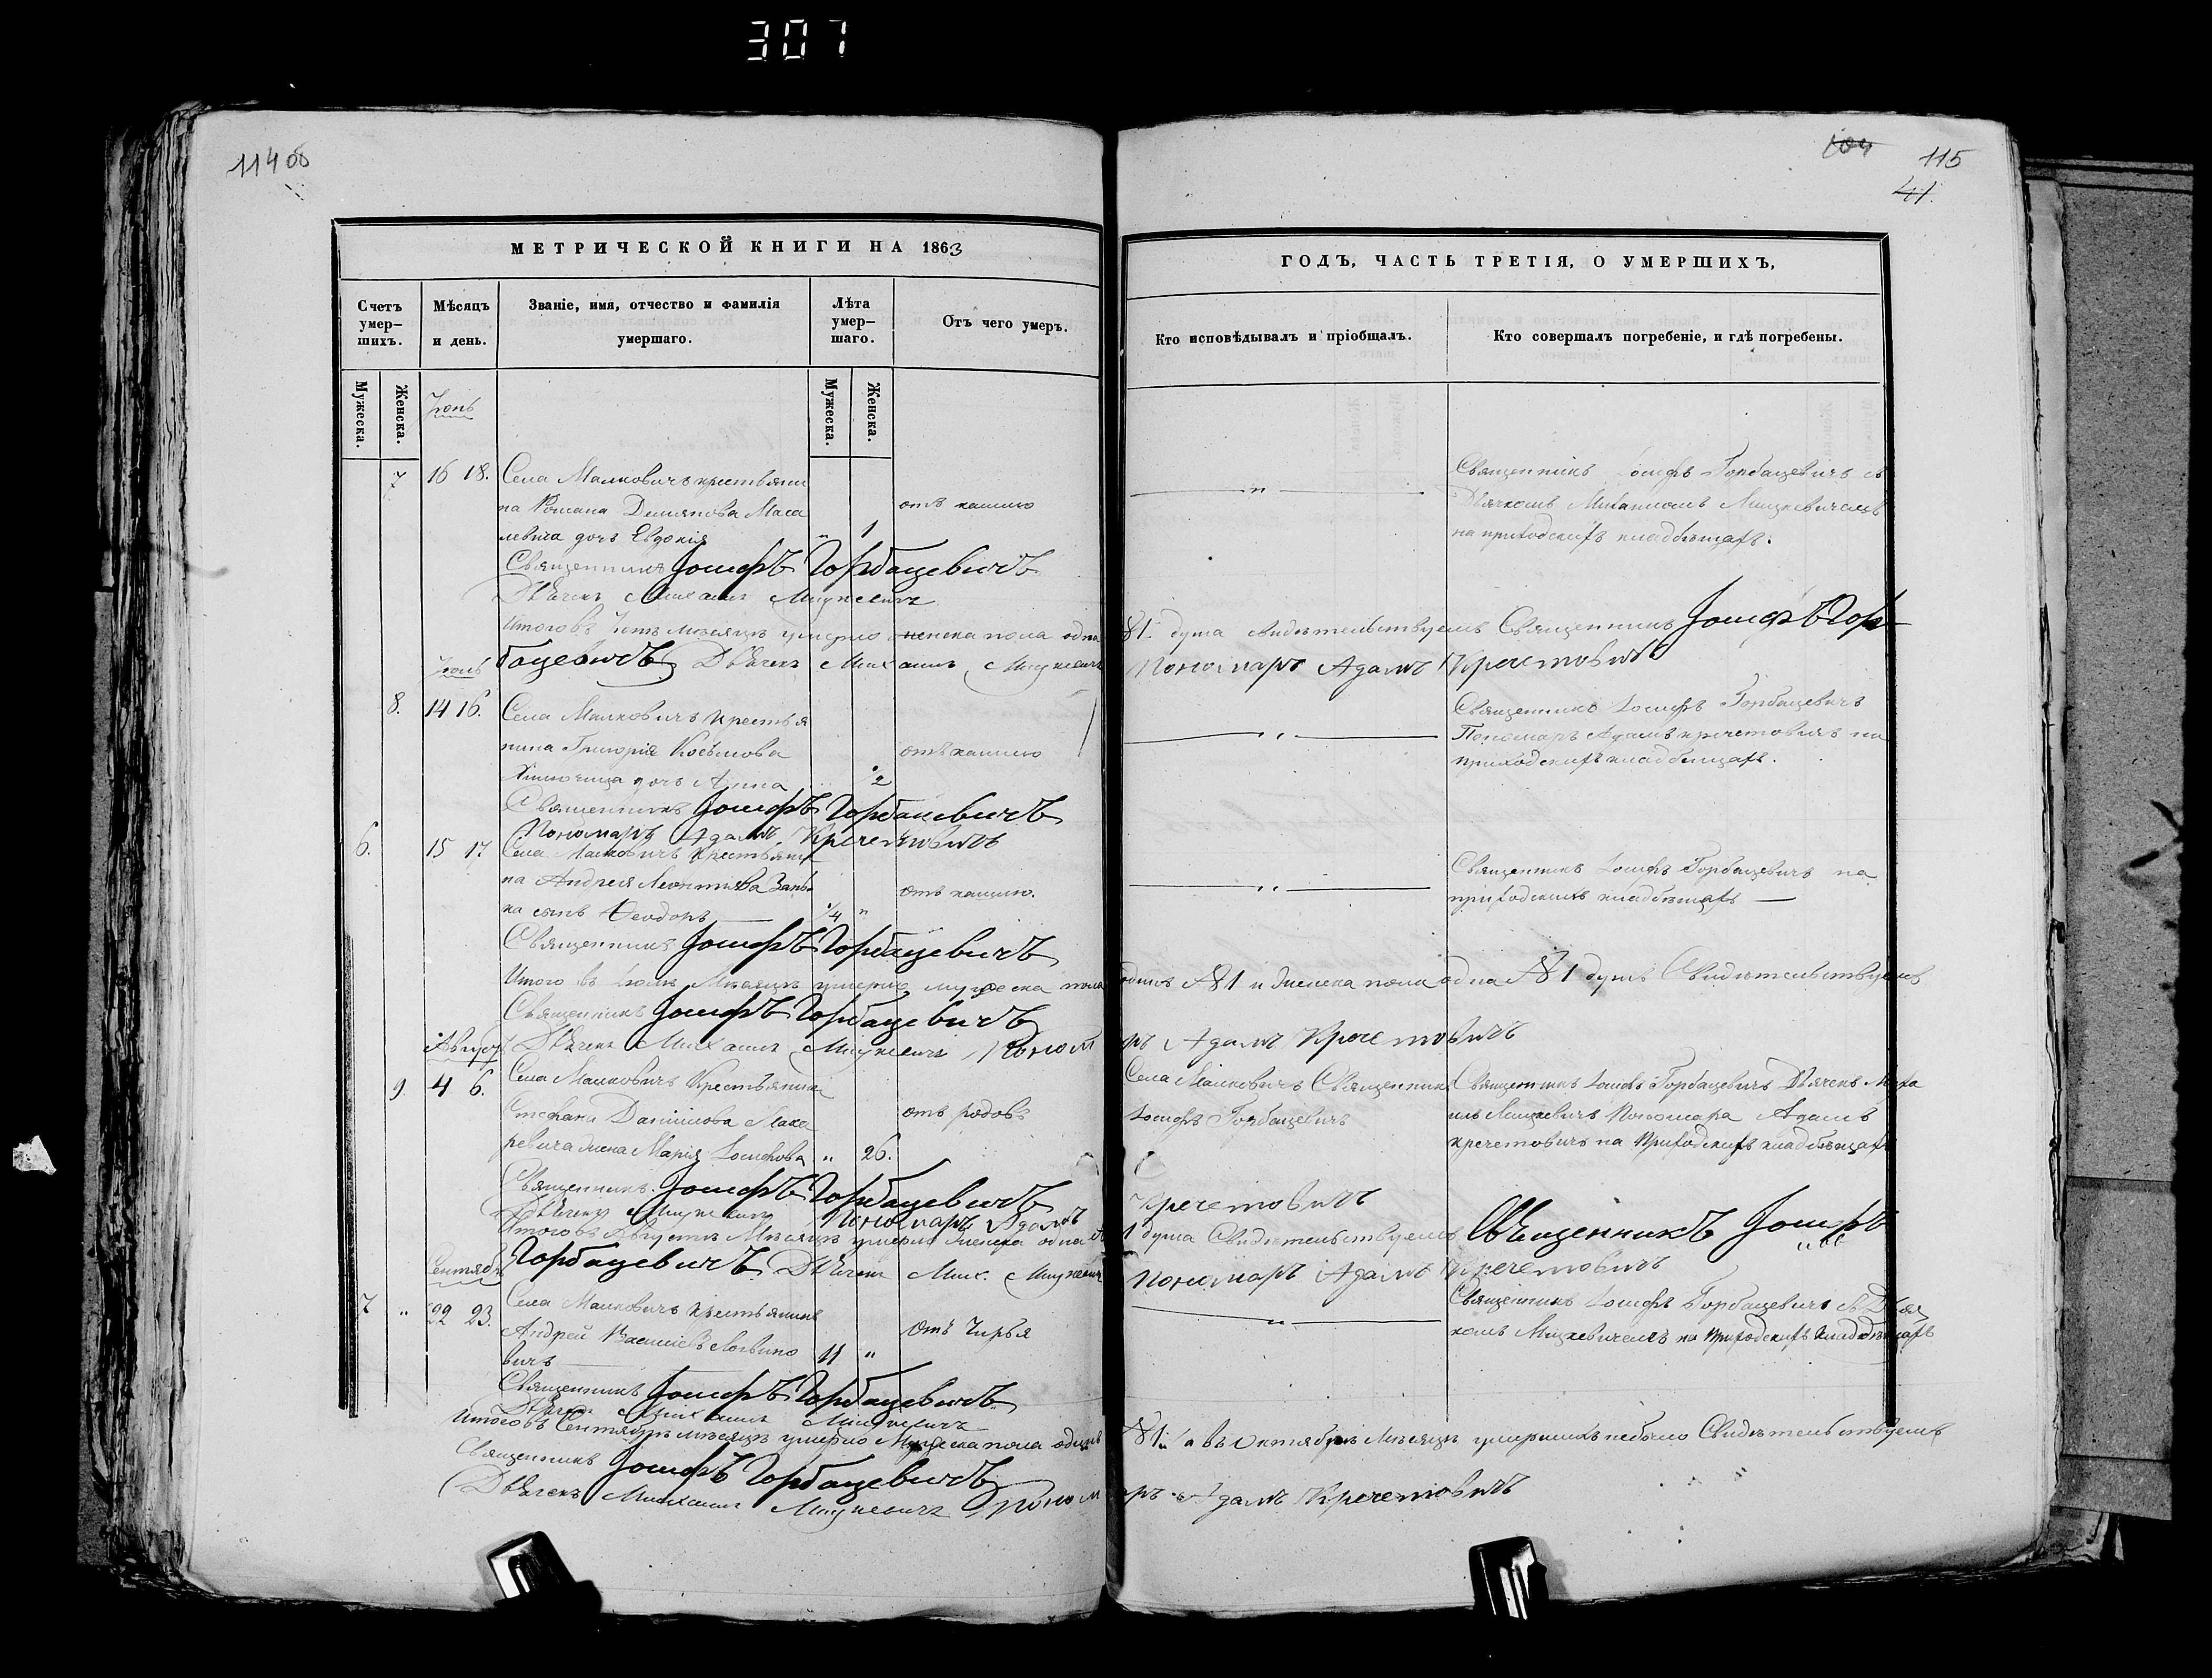 307
114 об
104
115
41.
МЕТРИЧЕСКОЙ КНИГИ НА 1863
ГОДЪ, ЧАСТЬ ТРЕТІЯ, О УМЕРШИХЪ,
Счетъ умер- шихъ.
Мѣсяцъ и день.
Званіе, имя, отчество и фамилія умершаго.
Лѣта умер- шаго.
Отъ чего умеръ.
Кто исповѣдывалъ и пріобщалъ.
Кто совершалъ погребеніе, и гдѣ погребены.
Мужеска.
Женска.
Мужеска.
Женска.
7 16 18. Села Малковичъ крестьяни
на Романа Демянова
дочь Евдокія " 1
отъ кашлю
Священникъ Іосифъ Горбацевичъ съ
Дьячкомъ Михаиломъ Мицкевичемъ
на приходскихъ кладбищахъ.
Священникъ Іосифъ Горбацевичъ
Дьячекъ Михаилъ Мицкевичъ
Итого въ мѣсяцѣ умерло женска пола одна
№1. душа свидѣтельствуемъ Священникъ Іосифъ Гор
бацевичъ Дьячекъ Михаилъ Мицкевичъ
Пономаръ Адамъ Кречетовичъ
Іюль
8. 14 16. Села Малковичъ крестья
нина Григорія Косьмова
дочь Анна 1/2
отъ кашлю
Священникъ Іосифъ Горбацевичъ
Пономаръ Адамъ Кречетовичъ на
приходскихъ кладбищахъ.
Священникъ Іосифъ Горбацевичъ
Пономаръ Адамъ Кречетовичъ
6. 15 17 Села Малковичъ Крестьяни
на Андрея Леонтіева
ка сынъ Ѳеодоръ 1/4 "
отъ кашлю.
Священникъ Іосифъ Горбацевичъ на
приходскихъ кладбищахъ
Священникъ Іосифъ Горбацевичъ
Итого въ Іюлѣ Мѣсяцѣ умерло мужеска пола
одинъ №1 и женска пола одна №1 душъ Свидѣтельствуемъ
Священникъ Іосифъ Горбацевичъ
Дьячекъ Михаилъ Мицкевичъ Поном
ръ Адамъ Кречетовичъ
Августъ
9 4 6. Села Малковичъ Крестьянина
Стефана Даниілова Мака
ревича жена Марія Іосифова " 26.
отъ родовъ
Села Малковичъ Священникъ
Іосифъ Горбацевичъ
Священникъ Іосифъ Горбацевичъ Дьячекъ Миха
илъ Мицкевичъ Пономара Адамъ
кречетовичъ на Приходскихъ кладбищахъ
Священникъ Іосифъ Горбацевичъ
Дьячекъ Мицкевичъ Пономаръ Адамъ
Кречетовичъ
Итого въ Августѣ Мѣсяцѣ умерло женска одна №
1 душа Свидѣтельствуемъ Священникъ Іосифъ
Горбацевичъ Дьячекъ Мих. Мицкевичъ
Пономаръ Адамъ Кречетовичъ
Сентябъ
7 " 22 23. Села Малковичъ крестьянинъ
Андрей Василіевъ Логвино
вичъ 11 "
Отъ Чирья
Священникъ Іосифъ Горбацевичъ съ Дьяч
комъ Мицкевичемъ на Приходскихъ Кладбищахъ
Священникъ Іосифъ Горбацевичъ
Дьячекъ Михаилъ Мицкевичъ
Итого въ Сентябрѣ мѣсяцѣ умерло Мужеска пола одинъ
№1. а въ Октябрѣ Мѣсяцѣ умершихъ небыло Свидѣтельствуемъ
Священникъ Іосифъ Горбацевичъ
Дьячекъ Михаилъ Мицкевичъ Поном
аръ Адамъ Кречетовичъ